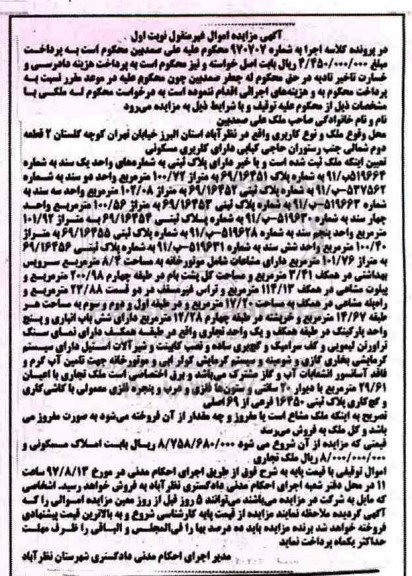 آگهی مزایده اموال غیرمنقول نوبت اول
در پرونده کلاسه اجرا به شماره ۹۷۰۷۰۷ محکوم علیه علی صمدبین محکوم است به پرداخت
مبلغ ۴/۴۵۰/۰۰۰/۰۰۰ ریال بابت اصل خواسته و نیز محکوم است به پرداخت هزینه دادرسی و
خسارت تاخیر تادیه در حق محکوم له جعفر صمدبین چون محکوم علیه در موعد مقرر نسبت به
پرداخت محکوم به و هزینه‌های اجرائی اقدام ننموده است به درخواست محکوم له ملکی با
مشخصات ذیل از محکوم علیه توقیف و با شرایط ذیل به مزایده می‌رود
نام و نام خانوادگی صاحب ملک علی صمدبین
محل وقوع ملک و نوع کاربری واقع در نظرآباد استان البرز خیابان تهران کوچه گلستان ۲ قطعه
دوم شمالی جنب رستوران حاجی کبابی دارای کاربری مسکونی
تعیین اینکه ملک ثبت شده است و یا خیر دارای پلاک ثبتی به شماره‌های واحد یک سند به شماره
۵۱۹۶۶۴ب/۹۱ به شماره پلاک ۶۹/۱۶۴۵۱ به متراژ ۱۰۰/۷۲ مترمربع واحد دو سند به شماره
۵۳۷۵۶۲–ب/۹۱ به شماره پلاک ثبتی ۶۹/۱۶۴۵۲ به متراژ ۱۰۲/۰۸ مترمربع واحد سه سند به
شماره ۵۱۹۶۶۳–ب/۹۱ به شماره پلاک ثبتی ۶۹/۱۶۴۵۳ به متراژ ۱۰۰/۵۶ مترمربع واحد
چهار سند به شماره ۵۱۹۶۳۰–ب/۹۱ به شماره پلاک ثبتی ۶۹/۱۶۴۵۴ به متراژ ۱۰۱/۹۲
مترمربع واحد پنجم سند به شماره ۵۱۹۶۲۸–ب/۹۱ به شماره پلاک ثبتی ۶۹/۱۶۴۵۵ به متراژ
۱۰۰/۴۰ مترمربع واحد شش سند به شماره ۵۱۹۶۳۱–ب/۹۱ به شماره پلاک ثبتی ۶۹/۱۶۴۵۶
به متراژ ۱۰۱/۷۶ مترمربع دارای مشاعات شامل موتورخانه به مساحت ۸/۴ مترمربع سرویس
بهداشتی در همکف ۳/۴۱ مترمربع و مساحت کل پشت بام در طبقه چهارم ۲۰۰/۹۸ مترمربع و
پیلوت مشاعی در همکف ۱۱۴/۱۳ مترمربع و تراس غیرمسقف در دو قسمت ۲۲/۸۸ مترمربع و
راه‌پله مشاعی در همکف به مساحت ۱۷/۲۰ مترمربع و در طبقه اول و دوم و سوم به مساحت هر
طبقه ۱۴/۶۲ مترمربع و خرپشته در طبقه چهارم ۱۲/۲۸ مترمربع دارای شش باب انباری و پنج
واحد پارکینگ در طبقه همکف و یک واحد تجاری واقع در طبقه همکف دارای نمای سنگ
تراورتن لیمویی و کف سرامیک و گچبری ساده و نصب کابینت و شیرآلات استیل دارای سیستم
گرمایشی بخاری گازی و شومینه و سیستم گرمایش کولر آبی و موتورخانه جهت تامین آب گرم و
فاقد آسانسور انشعابات آب و گاز مشترک می‌باشد و برق اختصاصی است ملک تجاری با اعیان
۲۹/۶۱ مترمربع با دیوار ۲۰ سانتی ستون‌ها فلزی و درب و پنجره فلزی معمولی با کاشی‌کاری
و گچ‌کاری پلاک ثبتی ۱۶۴۵۰ فرعی از ۶۹ اصلی
تصریح به اینکه ملک مشاع است یا مفروز و چه مقدار از آن فروخته می‌شود به صورت مفروز می
باشد و کل ملک به فروش می‌رسد
قیمتی که مزایده از آن شروع می شود ۸/۷۵۸/۶۸۰/۰۰۰ ریال بابت املاک مسکونی و
۸/۰۰۰/۰۰۰/۰۰۰ ریال ملک تجاری
اموال توقیفی با قیمت پایه به شرح فوق از طریق اجرای احکام مدنی در مورخ ۹۷/۸/۱۳ ساعت
۱۱ در محل دفتر شعبه اجرای احکام مدنی دادگستری نظرآباد به فروش خواهد رسید. اشخاصی
که مایل به شرکت در مزایده می‌باشند می‌توانند ۵ روز قبل از روز معین مزایده اموالی را که
آگهی گردیده ملاحظه نمایند مزایده از قیمت پایه کارشناسی شروع و به بالاترین قیمت پیشنهادی
فروخته خواهد شد برنده مزایده باید ده درصد بها را فی‌المجلس و الباقی را ظرف مهلت
حداکثر یکماه پرداخت نماید
مدیر اجرای احکام مدنی دادگستری شهرستان نظرآباد